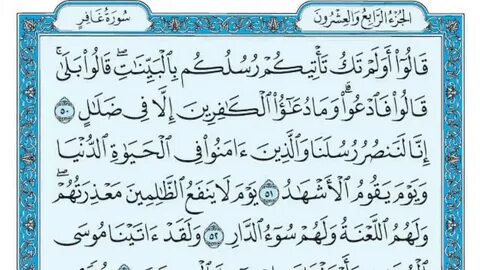 الجُزْءُ الرَّابِعُ وَالعِشْرُونَ
سُورَةُ غَافِرٍ
قَالُوٓا۟ أَوَلَمْ تَكُ تَأْتِيكُمْ رُسُلُكُم بِٱلْبَيِّنَٰتِ ۖ قَالُوا۟ بَلَىٰ ۚ
قَالُوا۟ فَٱدْعُوا۟ ۗ وَمَا دُعَٰٓؤُا۟ ٱلْكَٰفِرِينَ إِلَّا فِى ضَلَٰلٍ ٥٠
إِنَّا لَنَنصُرُ رُسُلَنَا وَٱلَّذِينَ ءَامَنُوا۟ فِى ٱلْحَيَوٰةِ ٱلدُّنْيَا
وَيَوْمَ يَقُومُ ٱلْأَشْهَٰدُ ٥١ يَوْمَ لَا يَنفَعُ ٱلظَّٰلِمِينَ مَعْذِرَتُهُمْ ۖ
وَلَهُمُ ٱللَّعْنَةُ وَلَهُمْ سُوٓءُ ٱلدَّارِ ٥٢ وَلَقَدْ ءَاتَيْنَا مُوسَى